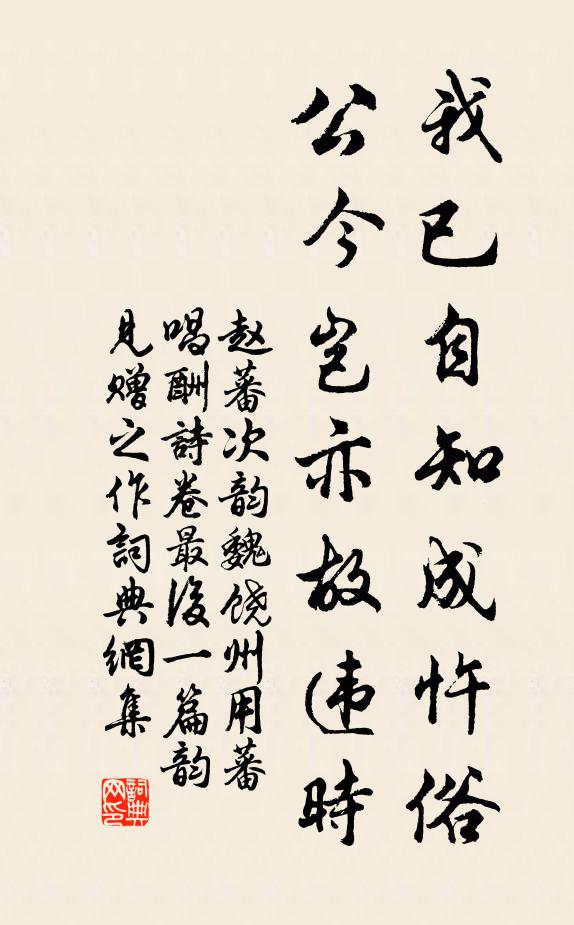 我已自知成忤俗
公今岂亦故违時
赵蕃次韵魏饶州用蕃
唱酬詩卷最後一篇韵
見赠之作詞典網集
詞典网印